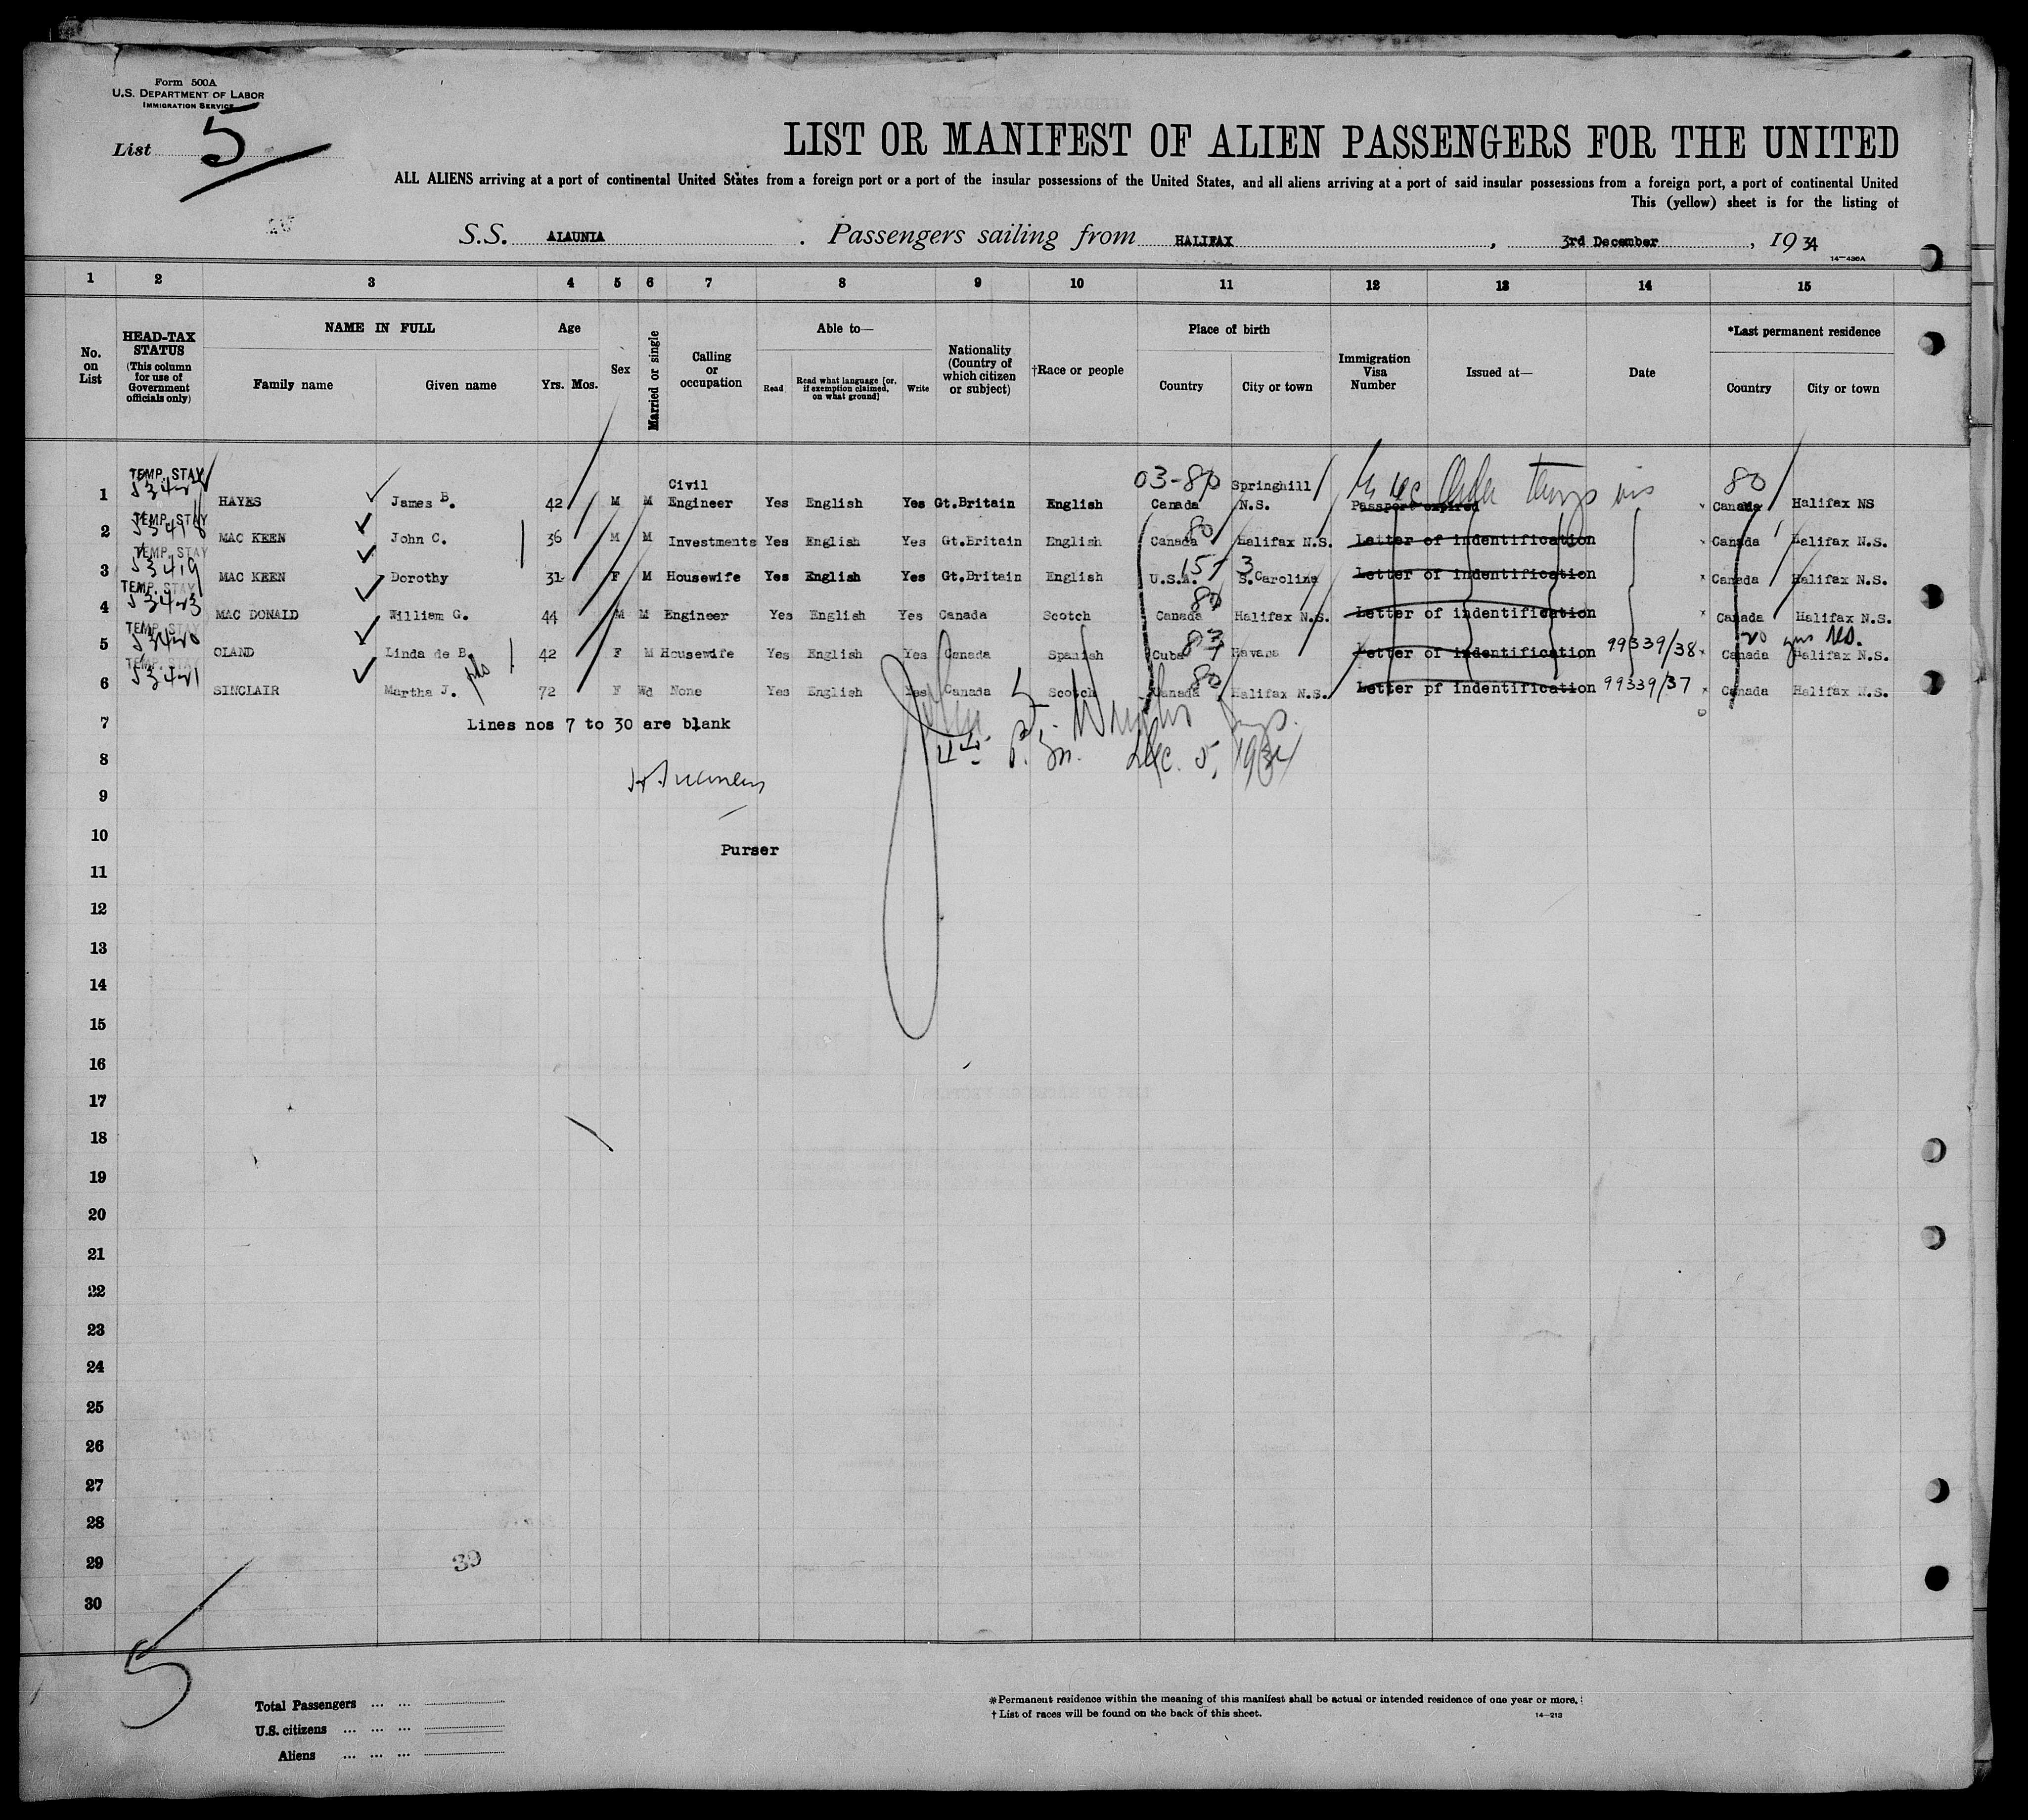 Form 500A
U.S. DEPARTMENT OF LABOR
IMMIGRATION SERVICE
List 5
LIST OR MANIFEST OF ALIEN PASSENGERS FOR THE UNITED
ALL ALIENS arriving at a port of continental United States from a foreign port or a port of the insular possessions of the United States, and all aliens arriving at a port of said insular possessions from a foreign port, a port of continental United
This (yellow) sheet is for the listing of
S.S. ALAUNIA . Passengers sailing from HALIFAX , 3rd December , 1934
14—430A
1 2 3 4 5 6 7 8 9 10 11 12 13 14 15
No. on List
HEAD-TAX STATUS
(This column for use of Government officials only)
NAME IN FULL
Family name Given name
Age
Yrs. Mos.
Sex
Married or single
Calling or occupation
Able to—
Read
Read what language [or, if exemption claimed, on what ground]
Write
Nationality (Country of which citizen or subject)
†Race or people
Place of birth
Country City or town
Immigration Visa Number
Issued at—
Date
*Last permanent residence
Country City or town
1 TEMP. STAY HAYES James B. 42 M M Civil Engineer Yes English Yes Gt.Britain English 03-80 Canada Springhill N.S. Passport expired 80 Canada Halifax NS
2 TEMP. STAY 53418 MAC KEEN John C. 36 M M Investments Yes English Yes Gt.Britain English 80 Canada Halifax N.S. Letter of indentification Canada Halifax N.S.
3 TEMP. STAY 53419 MAC KEEN Dorothy 31 F M Housewife Yes English Yes Gt.Britain English U.S.A. S.Carolina Letter of indentification Canada Halifax N.S.
4 TEMP. STAY 53423 MAC DONALD William G. 44 M M Engineer Yes English Yes Canada Scotch 80 Canada Halifax N.S. Letter of indentification Canada Halifax N.S.
5 TEMP. STAY 53420 OLAND Linda de B. 42 F M Housewife Yes English Yes Canada Spanish 83 Cuba Havana Letter of indentification 99339/38 20 yrs res. Canada Halifax N.S.
6 TEMP. STAY 53421 SINCLAIR Martha J. 72 F Wd None Yes English Yes Canada Scotch 80 Canada Halifax N.S. Letter pf indentification 99339/37 Canada Halifax N.S.
7 Lines nos 7 to 30 are blank
Dec. 5, 1934
8
9
10 Purser
11
12
13
14
15
16
17
18
19
20
21
22
23
24
25
26
27
28
29 39
30
5
Total Passengers ... ...
U.S. citizens ... ... ...
Aliens ... ... ...
*Permanent residence within the meaning of this manifest shall be actual or intended residence of one year or more.
† List of races will be found on the back of this sheet.
14—213